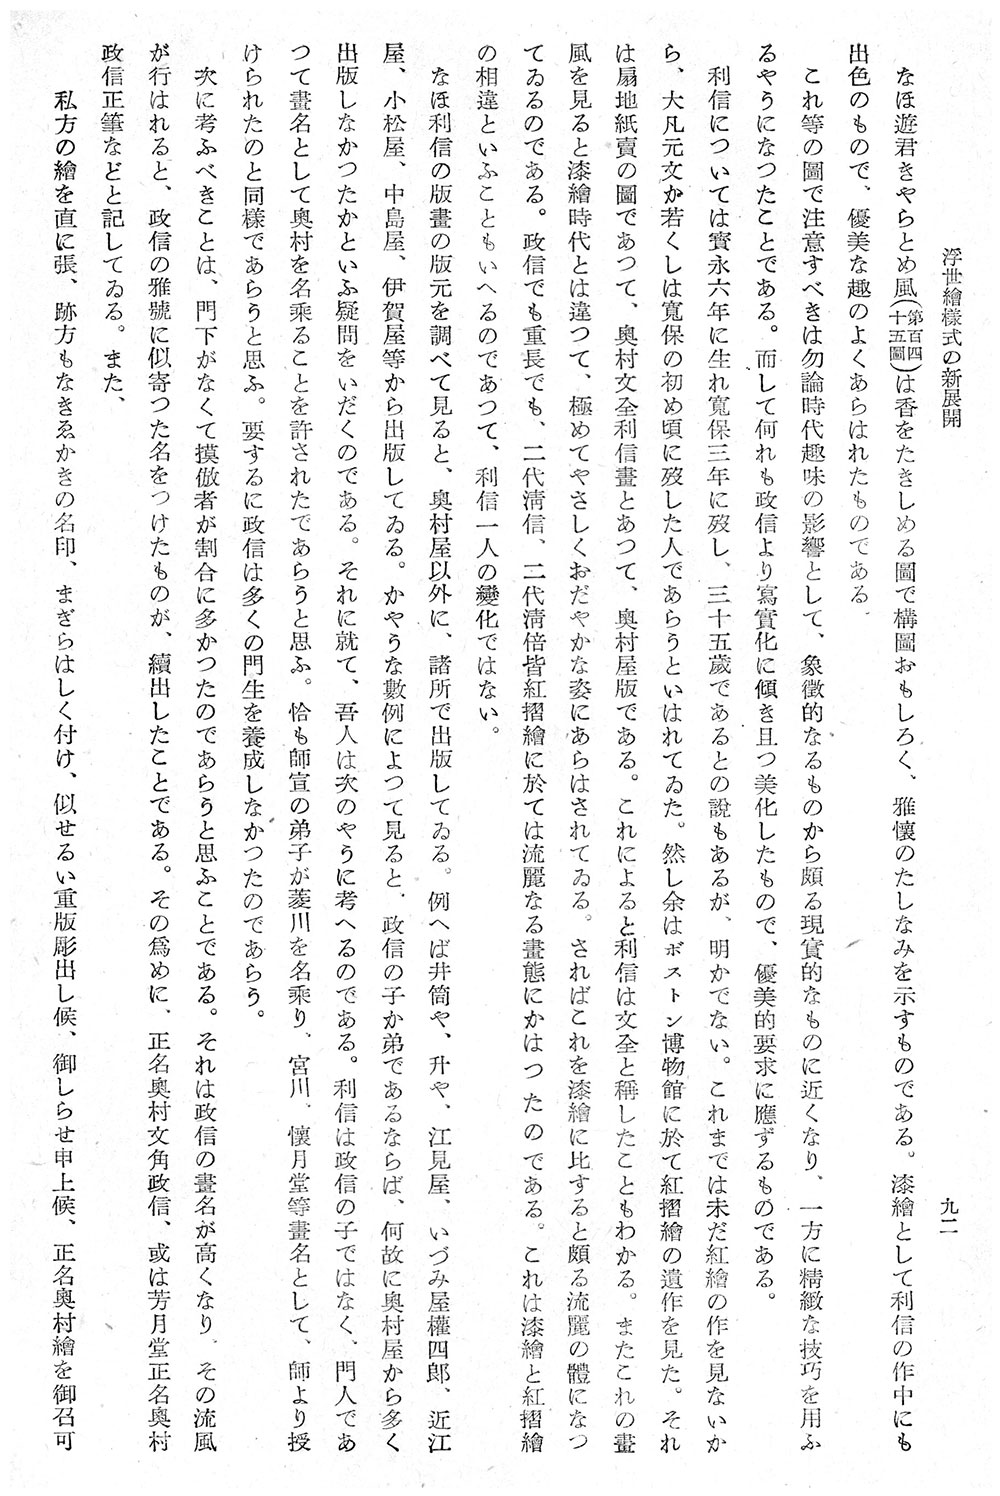 浮世繪樣式の新展開
九二
なほ遊君きやらとめ風(第百四十五圖)は香をたきしめる圖で構圖おもしろく、雅懷のたしなみを示すものである。漆繪として利信の作中にも
出色のもので、優美な趣のよくあらはれたものである
これ等の圖で注意すべきは勿論時代趣味の影響として、象徵的なるものから頗る現實的なものに近くなり、一方に精緻な技巧を用ふ
るやうになつたことである。而して何れも政信より寫實化に傾き且つ美化したもので、優美的要求に應ずるものである。
利信については寳永六年に生れ寬保三年に歿し、三十五歲であるとの說もあるが、明かでない。これまでは未だ紅繪の作を見ないか
ら、大凡元文か若くしは寬保の初め頃に歿した人であらうといはれてゐた。然し余はボストン博物館に於て紅摺繪の遺作を見た。それ
は扇地紙賣の圖であつて、奧村文全利信畫とあつて、奧村屋版である。これによると利信は文全と稱したこともわかる。またこれの畫
風を見ると漆繪時代とは違つて、極めてやさしくおだやかな姿にあらはされてゐる。さればこれを漆繪に比すると頗る流麗の體になつ
てゐるのである。政信でも重長でも、二代淸信、二代淸倍皆紅摺繪に於ては流麗なる畫態にかはつたのである。これは漆繪と紅摺繪
の相違といふこともいへるのであつて、利信一人の變化ではない。
なほ利信の版畫の版元を調べて見ると、奧村屋以外に、諸所で出版してゐる。例へば井筒や、升や、江見屋、いづみ屋權四郞、近江
屋、小松屋、中島屋、伊賀屋等から出版してゐる。かやうな數例によつて見ると、政信の子か弟であるならば、何故に奧村屋から多く
出版しなかつたかといふ疑問をいだくのである。それに就て、吾人は次のやうに考へるのである。利信は政信の子ではなく、門人であ
つて畫名として奧村を名乘ることを許されたであらうと思ふ。恰も師宣の弟子が菱川を名乘り、宮川、懷月堂等畫名として、師より授
けられたのと同樣であらうと思ふ。要するに政信は多くの門生を養成しなかつたのであらう。
次に考ふべきことは、門下がなくて摸倣者が割合に多かつたのであらうと思ふことである。それは政信の畫名が高くなり、その流風
が行はれると、政信の雅號に似寄つた名をつけたものが、續出したことである。その爲めに、正名奧村文角政信、或は芳月堂正名奧村
政信正筆などと記してゐる。また、
私方の繪を直に張、跡方もなきゑかきの名印、まぎらはしく付け、似せるい重版彫出し候、御しらせ申上候、正名奧村繪を御召可